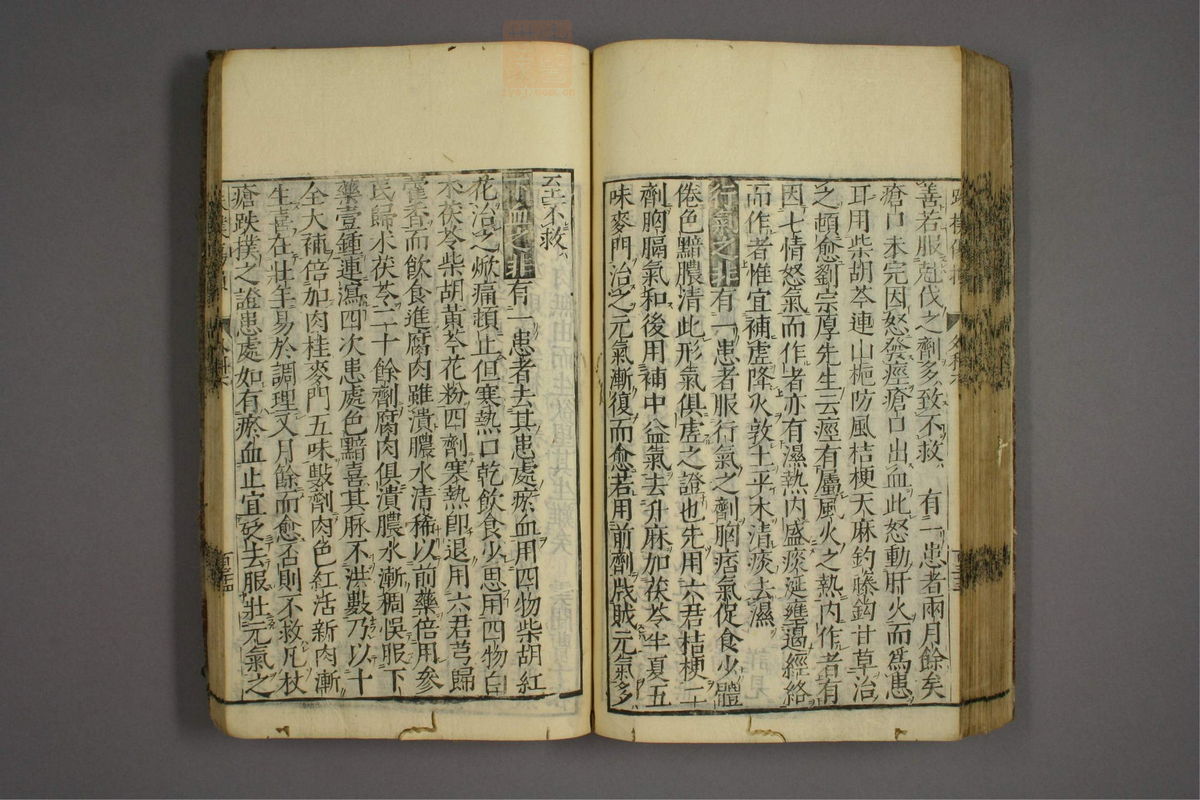 善若服剋伐之劑多致不救　有一患者兩月餘矣
瘡口未完因怒發痙瘡口出血此怒動肝火而爲患
耳用柴胡芩連山梔防風桔梗天麻釣藤鈎甘草治
之頓愈劉宗厚先生云痙有屬風火之熱内作者有
因七情怒氣而作者亦有濕熱内盛痰涎壅遏經絡
而作者惟宜補虚降火敦土平木清痰去濕
行氣之非有一患者服行氣之劑胸痞氣促食少體
倦色黯膿清此形氣俱虚之證也先用六君桔梗二
劑胸膈氣和後用補中益氣去升麻加茯苓半夏五
味麥門治之元氣漸復而愈若用前劑戕賊元氣多
至不救
下血之非有一患者去其患處瘀血用四物柴胡紅
花治之焮痛頓止但寒熱口乾飲食少思用四物白
朮茯苓柴胡黄芩花粉四劑寒熱即退用六君芎歸
藿香而飲食進腐肉雖潰膿水清稀以前藥倍用參
芪歸朮茯苓二十餘劑腐肉俱潰膿水漸稠悞服下
藥壹鍾連瀉四次患處色黯喜其脉不洪數乃以十
全大補倍加肉桂麥門五味數劑肉色紅活新肉漸
生喜在壯年易於調理又月餘而愈否則不救凡杖
瘡跌撲之證患處如有瘀血止宜砭去服壯元氣之